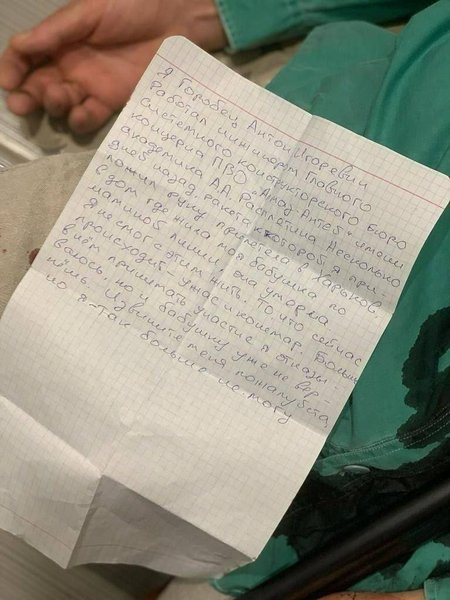 Я Горобец Антон Игоревич
работал инженером Главного
системного конструкторского Бюро
концерна ПВО "Алмаз Антей" имени
академика АА. Расплетина. Несколько
дней назад, ракета к которой я при-
ложил руку прилетела в Харьков.
в дом где жила моя бабушка по
маминой линии, она умерла.
Я не смог с этим жить. То что сейчас
происходит - ужас и кошмар. Больше
в нём принимать участие я отказы-
ваюсь, но и бабушку уже не вер-
нуть. Извините меня пожалуйста,
но я так больше не могу